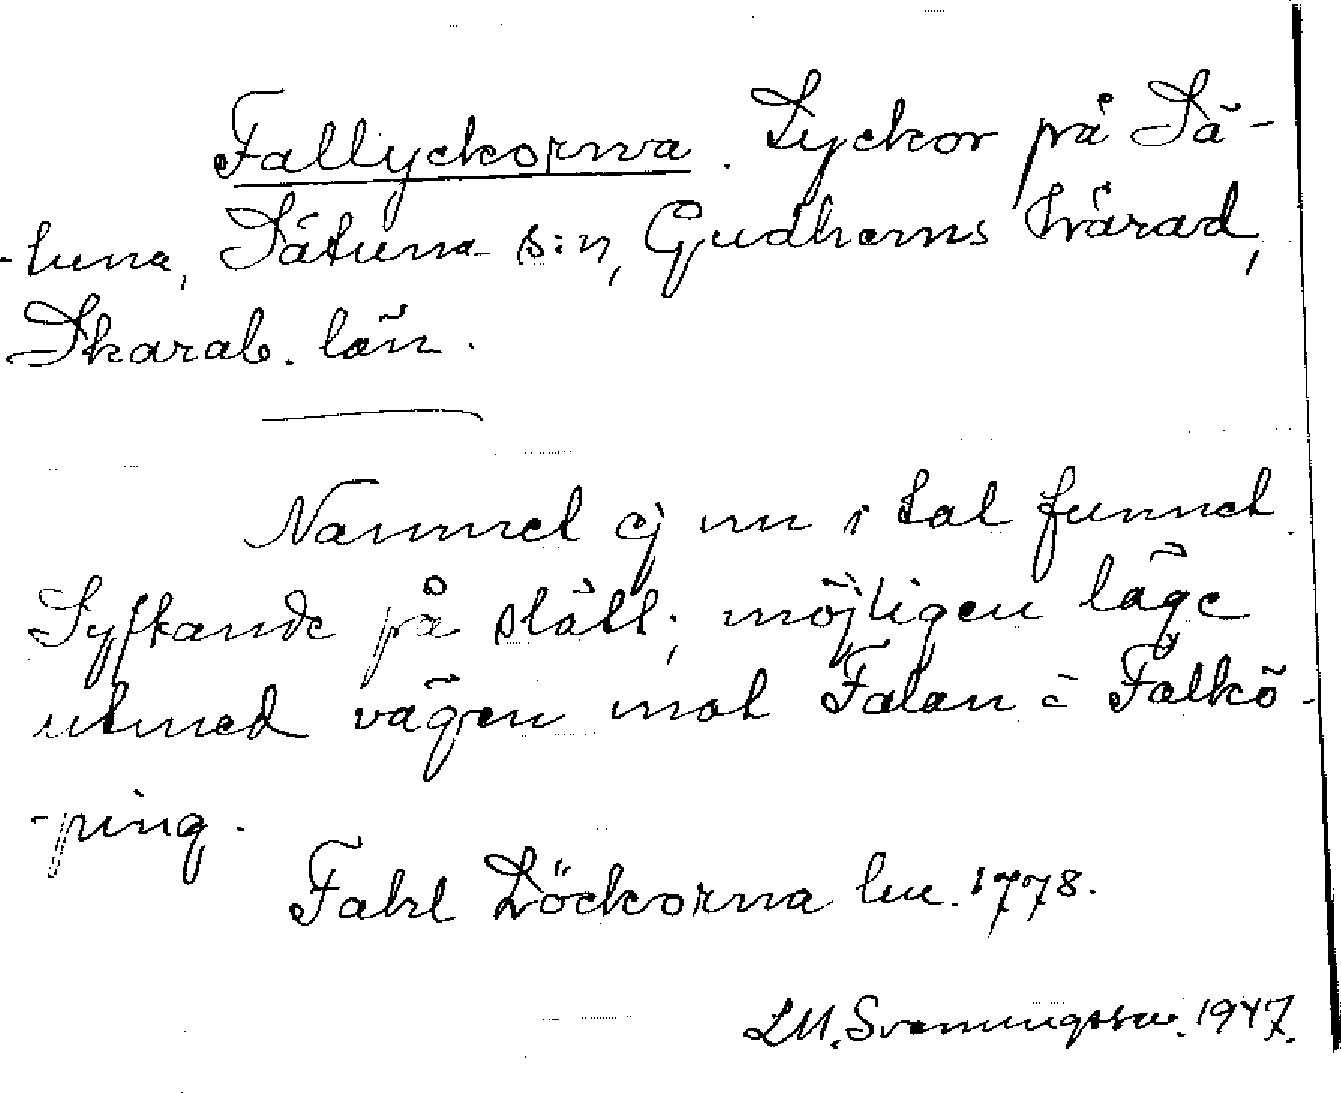 Fallyckorna. Lyckor på Sä-
-tuna, Sätuna s:n, Gudhems härad,
Skarab. län.
Namnet ej nu i tal funnet.
Syftande på slätt; möjligen läge
utmed vägen mot Falan = Falkö-
-ping.
Fahl Löckorna lm. 1778.
LM. Svenungsson. 1947.